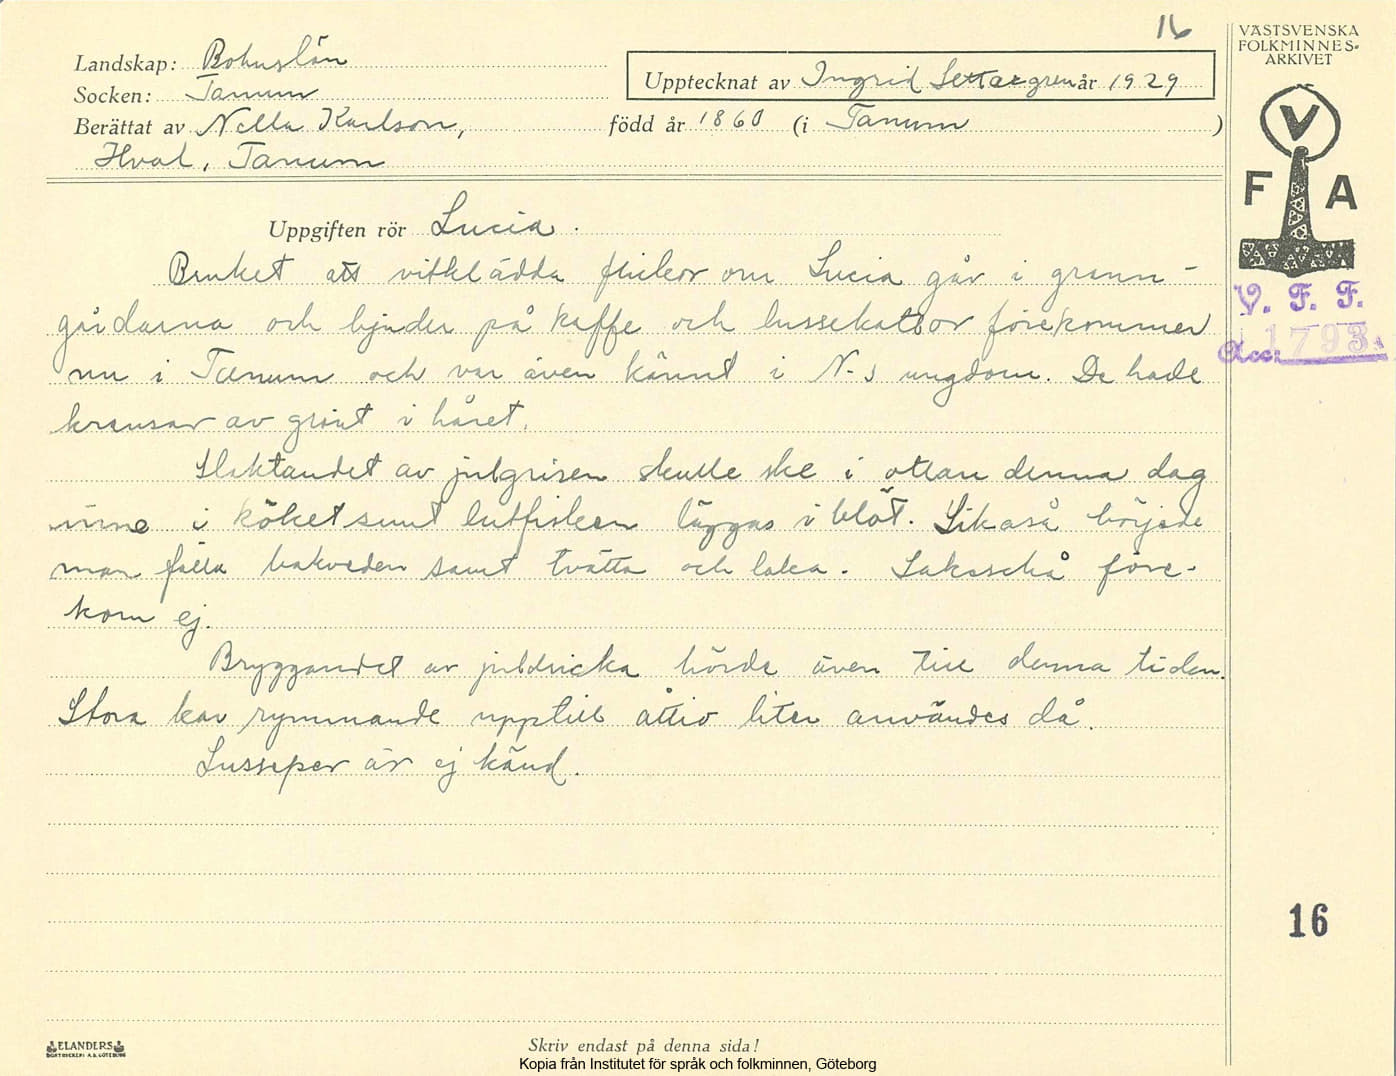 16
VÄSTSVENSKA
FOLKMINNES-
ARKIVET
Landskap: Bohuslän
Upptecknat av Ingrid Settergren år 1929
Socken: Tanum
Berättat av Nella Karlson, född år 1860 (i Tanum )
Hval, Tanum
V
F A
Uppgiften rör Lucia.
Bruket att vitklädda flickor om Lucia går i grann-
gårdarna och bjuder på kaffe och lussekattor förekommer
nu i Tanum och var även känt i N-s ungdom. De hade
kransar av grönt i håret.
Slaktandet av julgrisen skulle ske i ottan denna dag
inne i köket samt lutfisken läggas i blöt. Likaså började
man fälla bakveden samt tvätta och baka. Lakaschå före-
kom ej.
Bryggandet av juldricka hörde även till denna tiden.
Stora kar rymmande upptill åttio liter användes då.
Lusseper är ej känd.
V. F. F.
Acc: 1793
16
ELANDERS
BOKTRYCKERI A.B. GÖTEBORG
Skriv endast på denna sida!
Kopia från Institutet för språk och folkminnen, Göteborg